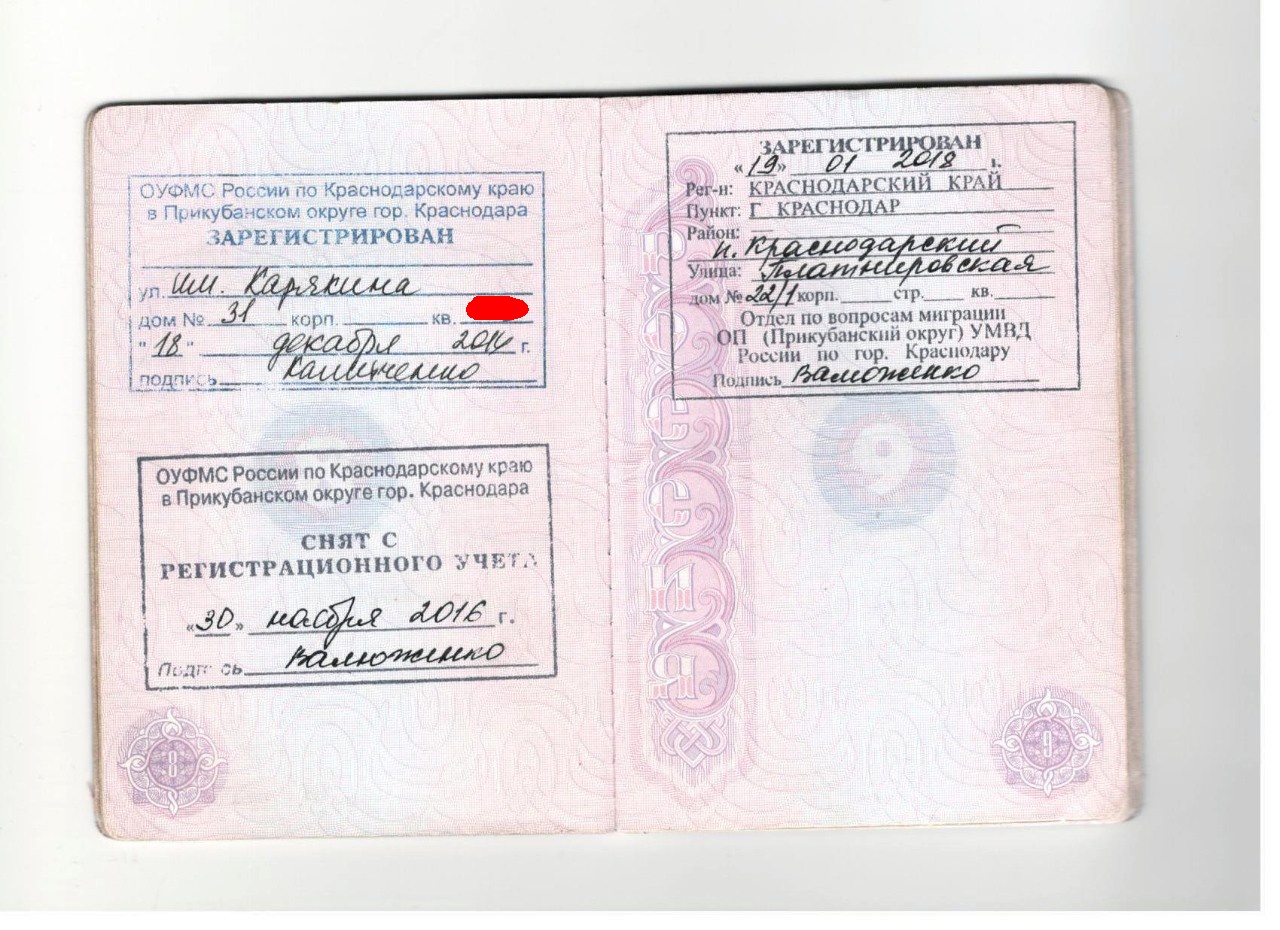 ОУФМС России по Краснодарскому краю
в Прикубанском округе гор. Краснодара
ЗАРЕГИСТРИРОВАН
ул. Им. Карякина
дом № 31 корп. кв.
"18" декабря 2014 г.
подпись
ОУФМС России по Краснодарскому краю
в Прикубанском округе гор. Краснодара
СНЯТ С
РЕГИСТРАЦИОННОГО УЧЕТА
«30» ноября 2016 г.
Подпись Валюженко
8
РОССИЯ
ЗАРЕГИСТРИРОВАН
«19» 01 2018 г.
Рег-н: КРАСНОДАРСКИЙ КРАЙ
Пункт: Г КРАСНОДАР
Район:
п. Краснодарский
Улица: Платнировская
дом № 22/1 корп. стр. кв.
Отдел по вопросам миграции
ОП (Прикубанский округ) УМВД
России по гор. Краснодару
Подпись Валюженко
9